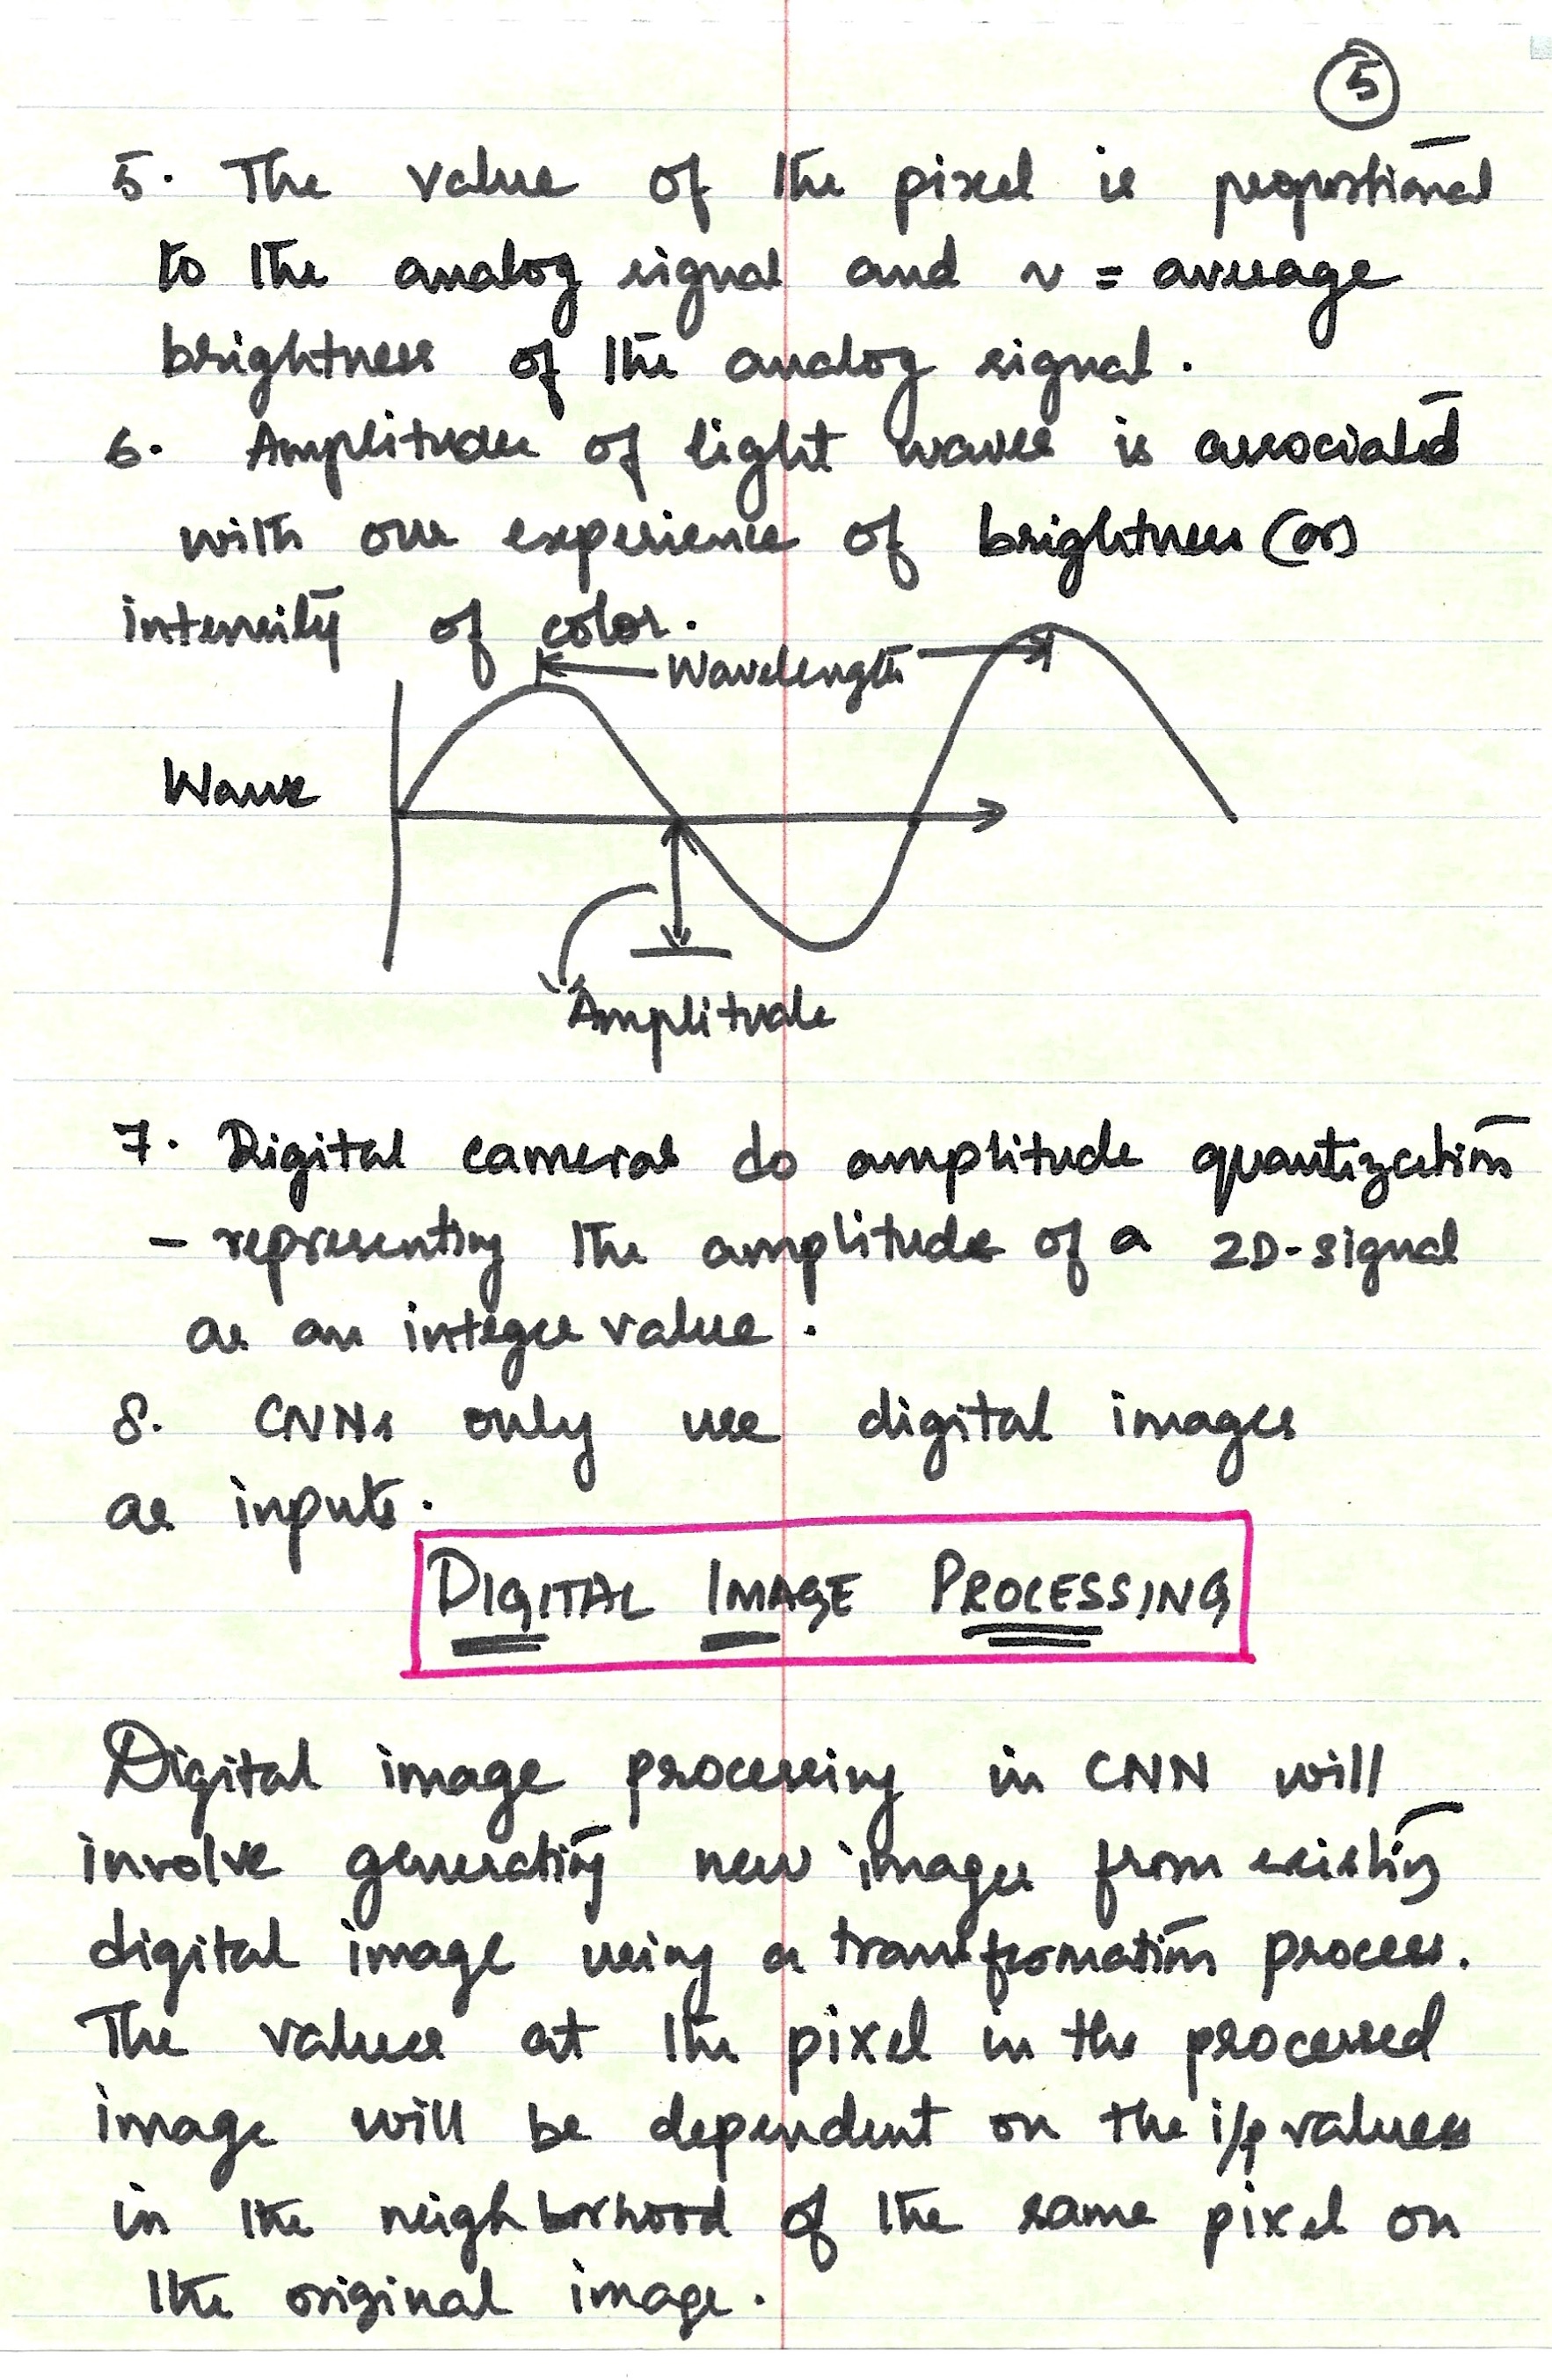 5
5. The value of the pixel is proportional
to the analog signal and v = average
brightness of the analog signal.
6. Amplitude of light waves is associated
with our experience of brightness (or)
intensity of color.
Wavelength
Wave
Amplitude
7. Digital cameras do amplitude quantization
- representing the amplitude of a 2D-signal
as an integer value.
8. CNNs only use digital images
as inputs.
DIGITAL IMAGE PROCESSING
Digital image processing in CNN will
involve generating new images from existing
digital image using a transformation process.
The values at the pixel in the processed
image will be dependent on the i/p values
in the neighborhood of the same pixel on
the original image.